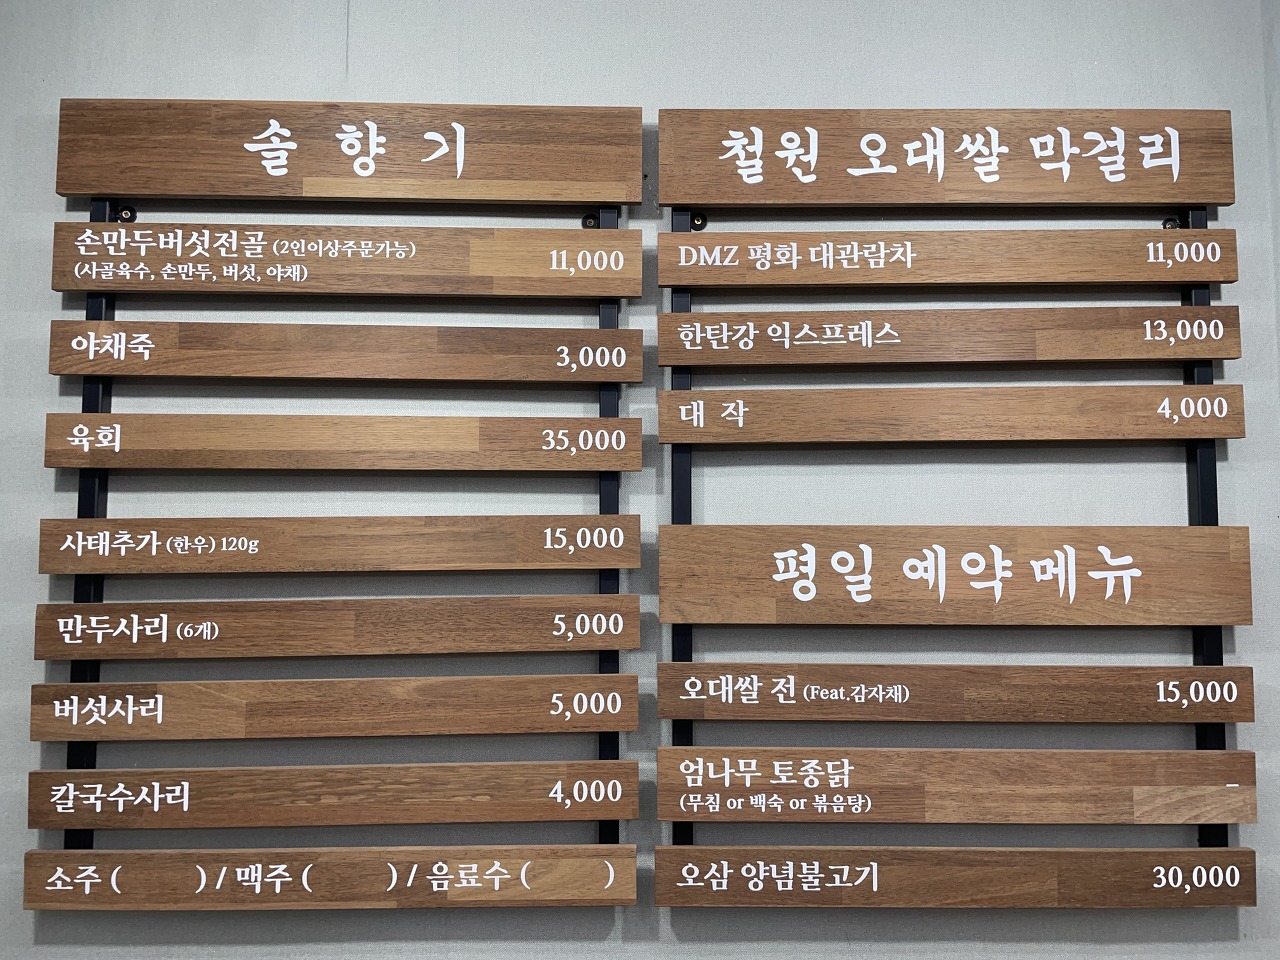 솔 향 기
손만두버섯전골 (2인이상주문가능) 11,000
(사골육수, 손만두, 버섯, 야채)
야채죽 3,000
육회 35,000
사태추가 (한우) 120g 15,000
만두사리 (6개) 5,000
버섯사리 5,000
칼국수사리 4,000
소주 ( ) / 맥주 ( ) / 음료수 ( )
철원 오대쌀 막걸리
DMZ 평화 대관람차 11,000
한탄강 익스프레스 13,000
대 작 4,000
평일 예약 메뉴
오대쌀 전 (Feat.감자채) 15,000
엄나무 토종닭 –
(무침 or 백숙 or 볶음탕)
오삼 양념불고기 30,000